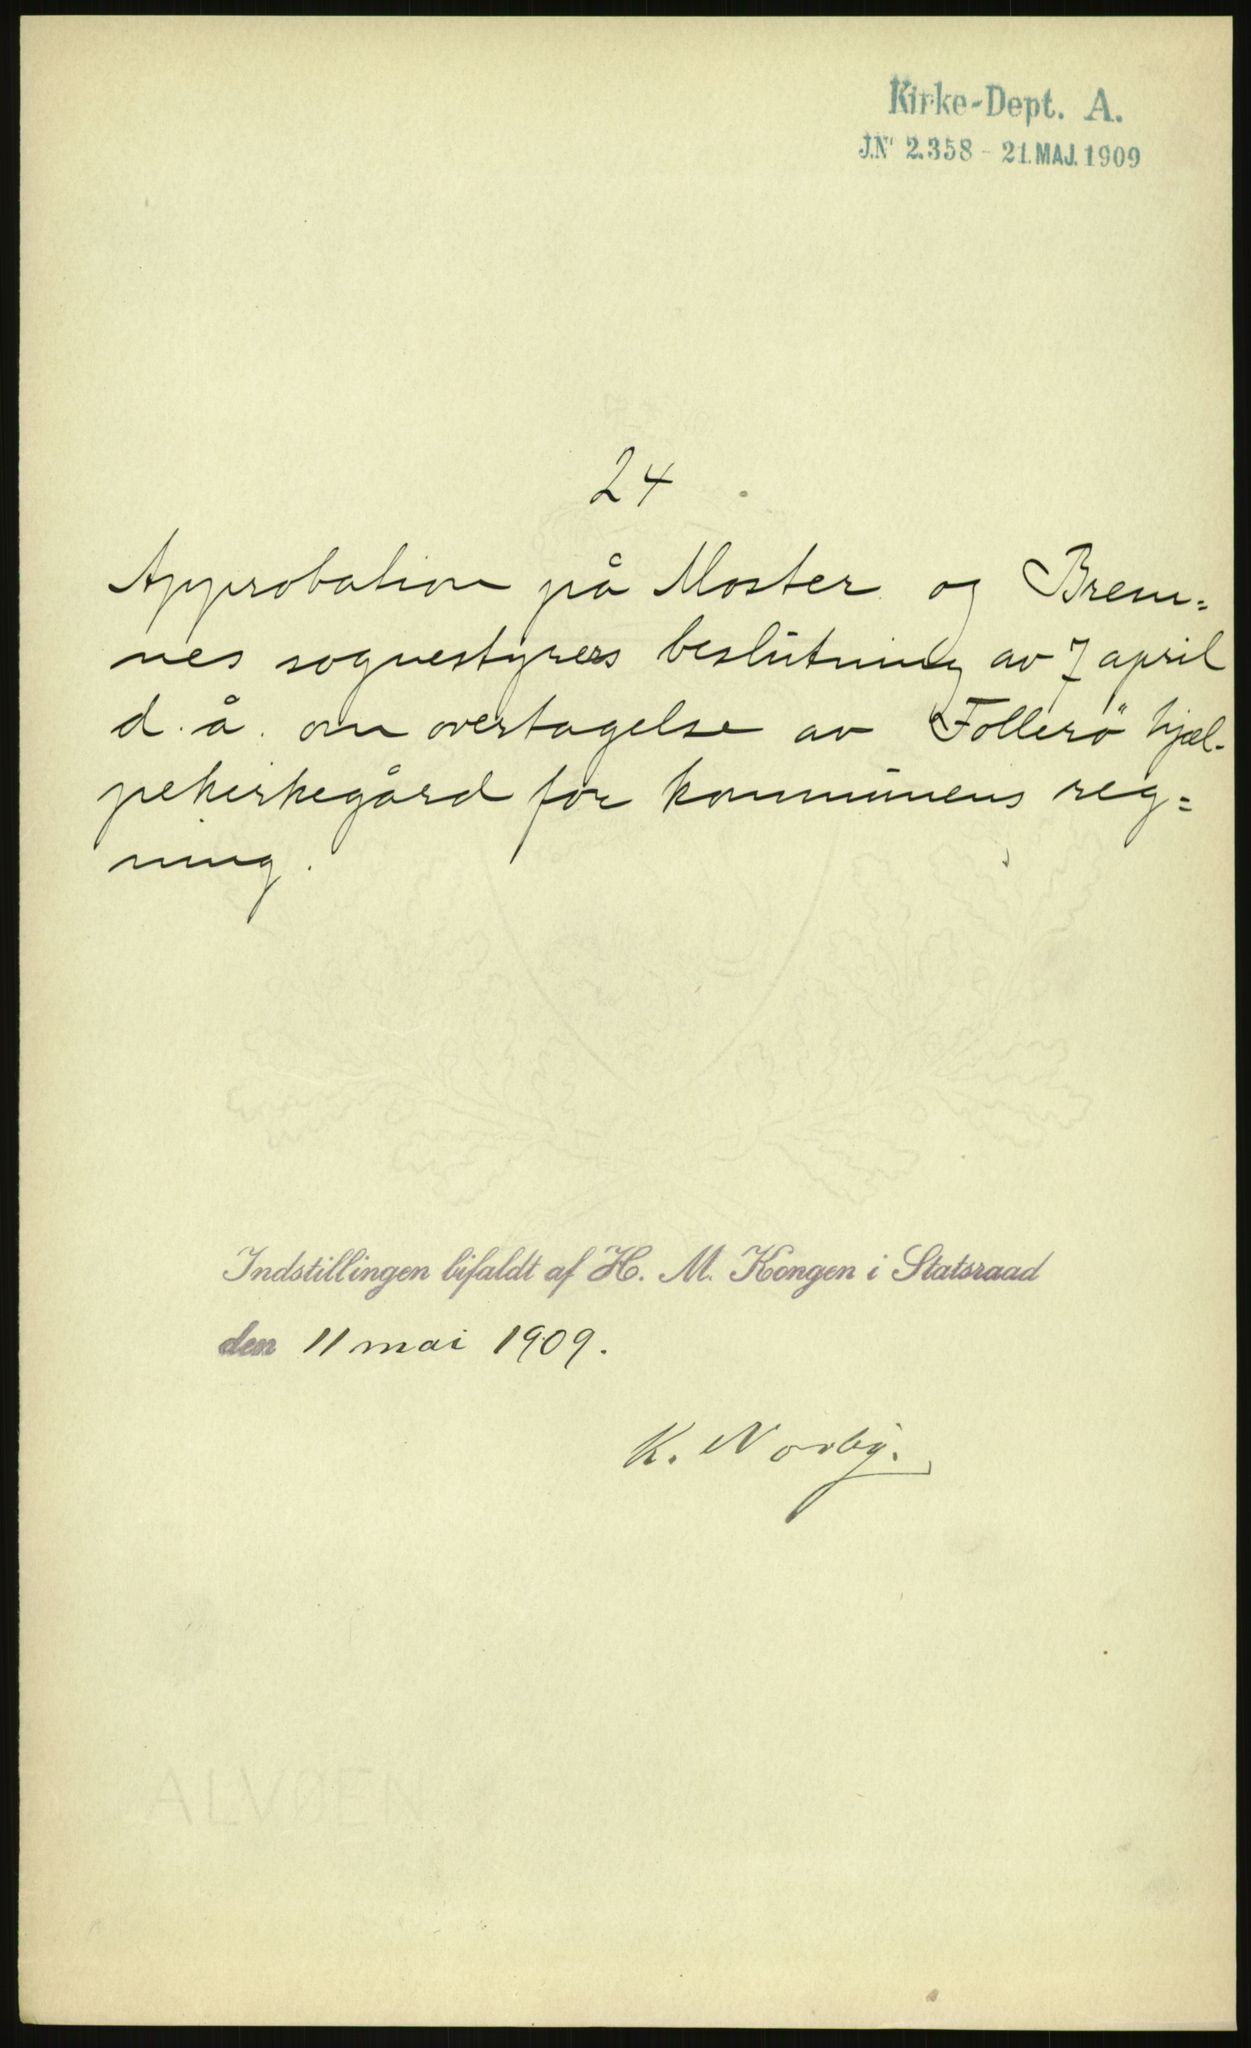 Kirke-Dept. A.
J.Nº 2.358 - 21. MAJ. 1909
24
Approbation på Moster og Brem=
nes sognestyrers beslutning av 7 april
d. å. om overtagelse av Follerö hjæl-
pekirkegård for kommunens reg=
ning.
Indstillingen bifaldt af H. M. Kongen i Statsraad
den 11 mai 1909.
K. Norby.
ALVØEN